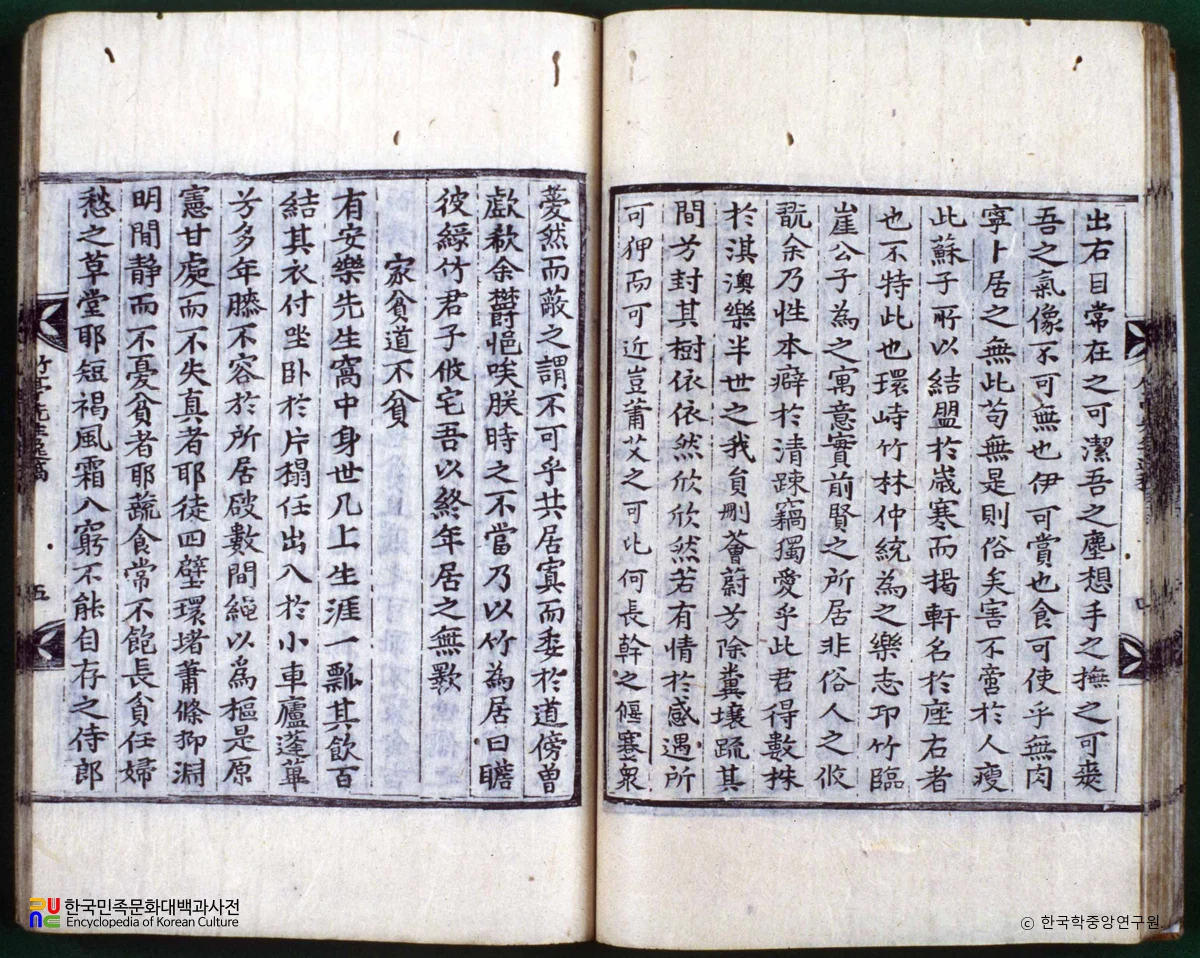 出右目常在之可潔吾之塵想手之撫之可喪
吾之氣像不可無也伊可賞也食可使乎無肉
寧卜居之無此苟無是則俗矣害不啻於人瘦
此蘇子所以結盟於歲寒而揭軒名於座右者
也不特此也環峙竹林仲統為之樂志卭竹臨
崖公子為之寓意實前賢之所居非俗人之攸
翫余乃性本癖於清踈竊獨愛乎此君得數株
於淇澳樂半世之我貟刪薈蔚芳除糞壤䟽其
間芳封其樹依依然欣欣然若有情於感遇所
可狎而可近豈蕭艾之可比何長幹之偃蹇衆
薆然而蔽之謂不可乎共居寘而委於道傍曾
歔欷余欝悒唉朕時之不當乃以竹為居曰瞻
彼綠竹君子攸宅吾以終年居之無斁
家貧道不貧
有安樂先生窩中身世几上生涯一瓢其飲百
結其衣付坐卧於片榻任出入於小車廬蓬蓽
芳多年膝不容於所居啟數間繩以為樞是原
憲甘處而不失真者耶徒四壁環堵蕭條抑淵
明閒靜而不憂貧者耶蔬食常不飽長貪任婦
愁之草堂耶短褐風霜入窮不能自存之侍郎
竹亭先生逸稿
五
한국민족문화대백과사전
Encyclopedia of Korean Culture
ⓒ 한국학중앙연구원